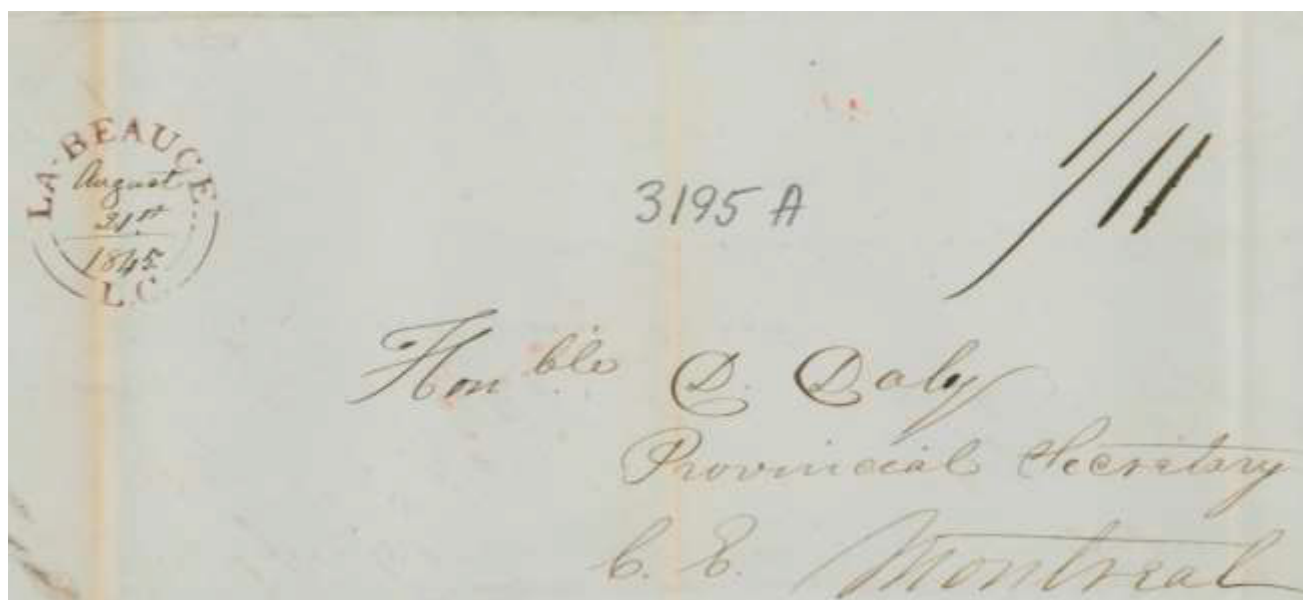 LA-BEAUCE.
August
31st
1845
L.C.
1/11
3195 A
Honble D. Daly
Provincial Secretary
C. E. Montreal